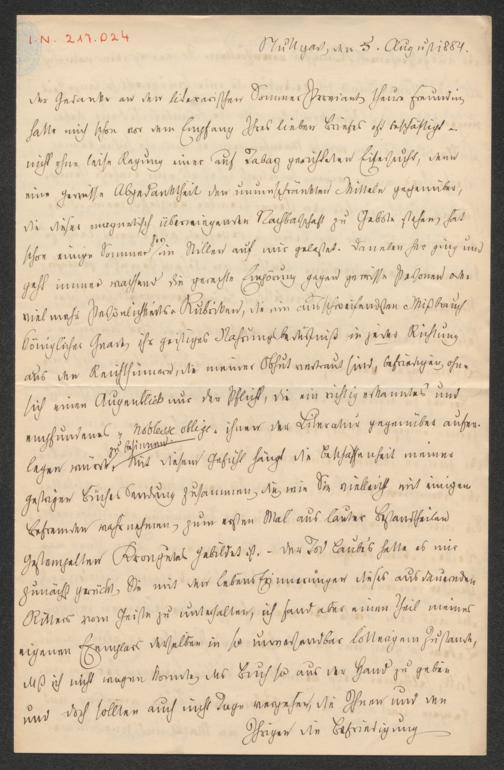 I.N. 217.024
Stuttgart, den 5. August 1884.
Der Gedanke an den literarischen Sommer Proviant, theure Freundin
hatte mich schon vor dem Empfang Ihres lieben Briefes oft beschäftigt –
nicht ohne leise Regung einer auf gerichteten Eifersucht, denn
eine gewisse Abgedanktheit den unumschränkten Mitteln gegenüber,
die dieser magnetisch überzeugenden Nachbarschaft zu Gebote stehen, hat
schon einige Sommer hin im Stillen auf mir gelastet. Daneben her ging und
geht immer wachsend die gerechte Empörung gegen gewisse Personen oder
vielmehr Persönlichkeits-Rubriken, die im ausschweifendsten Mißbrauch
königlicher Gnade, ihr geistiges Nahrungsbedürfniß in jeder Richtung
aus den Reichthümern, die meiner Obhut vertraut sind, befriedigen, ohne
sich einen Augenblick nur der Pflicht, die ein richtig erkanntes und
empfundenes "noblesse oblige" ihnen der Literatur gegenüber aufer-
legen würde, zu besinnen. Mit diesem Gefühl hängt die Beschaffenheit meiner
gestrigen Bücher Sendung zusammen, die, wie Sie vielleicht mit einigem
Befremden wahrnehmen, zum ersten Mal aus lauter Bestandtheilen
gestempelten Kronguts gebildet ist. – Der Tod Laube's hatte es mir
zunächst gerückt, Sie mit den Lebens Erinnerungen dieses ausdauernden
Ritters vom Geiste zu unterhalten, ich fand aber einen Theil meines
eigenen Exemplars derselben in so unversendbar lotterigem Zustande,
daß ich nicht wagen konnte, das Buch so aus der Hand zu geben
und doch sollten auch nicht Tage vergehen, die Ihnen und den
Ihrigen die Befriedigung